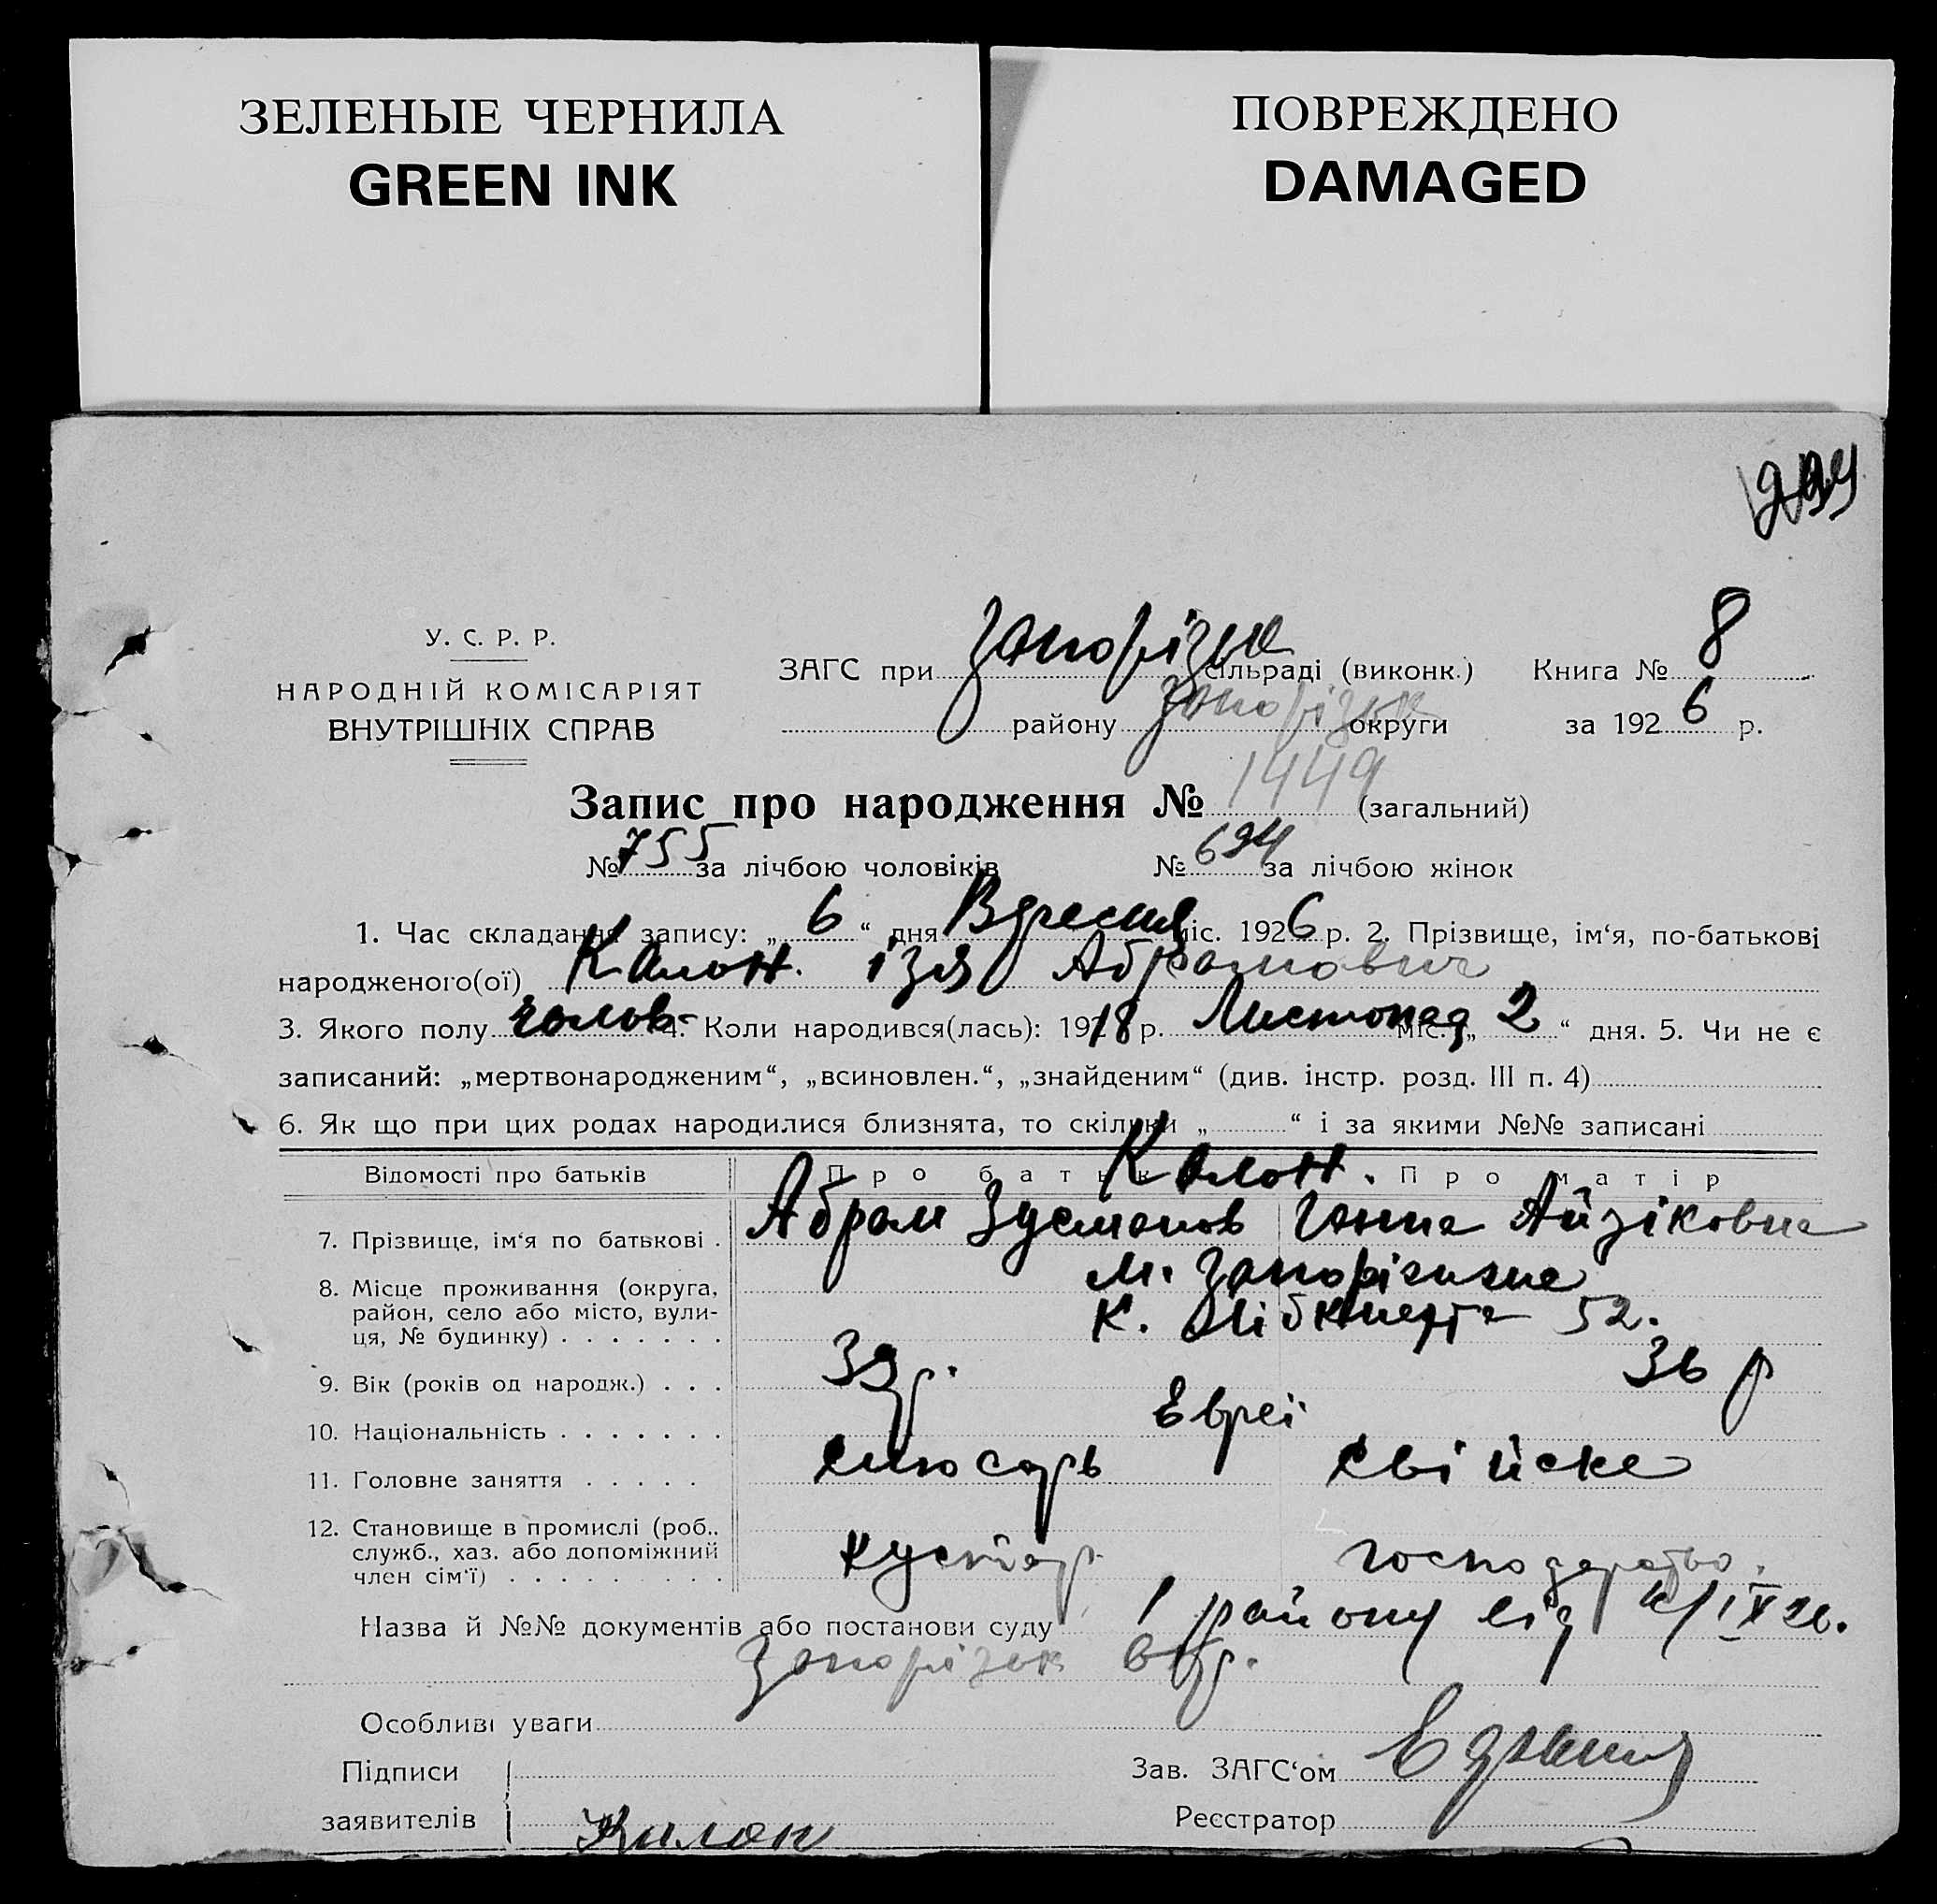 ЗЕЛЕНЫЕ ЧЕРНИЛА
GREEN INK
ПОВРЕЖДЕНО
DAMAGED
У. С. Р. Р.
НАРОДНІЙ КОМІСАРІЯТ
ВНУТРІШНІХ СПРАВ
ЗАГС при Запорізьк сільраді (виконк.) Книга № 8
району Запорізьк округи за 1926 р.
Запис про народження № 1449 (загальний)
№ 755 за лічбою чоловіків № 694 за лічбою жінок
1. Час складання запису: „ 6 “ дня Вересня міс. 1926 р. 2. Прізвище, ім‘я, по-батькові
народженого(ої) Калон. Ізя Абрамович
3. Якого полу чолов- 4. Коли народився(лась): 1918 р. Листопад міс. „ 2 “ дня. 5. Чи не є
записаний: „мертвонародженим“, „всиновлен.“, „знайденим“ (див. інстр. розд. III п. 4)
6. Як що при цих родах народилися близнята, то скільки „ “ і за якими №№ записані
Відомості про батьків Про батька Про матір
Калон.
7. Прізвище, ім‘я по батькові . Абрам Зусманов Ганна Айзіковна
8. Місце проживання (округа, м. Запоріжжне
район, село або місто, вули- К. Лібкнехта 52.
ця, № будинку) . . . . . . .
9. Вік (років од народж.) . . . 39 р. 36 р
10. Національність . . . . . . . Евреі
11. Головне заняття . . . . . слюсарь свійске
12. Становище в промислі (роб..
служб., хаз. або допоміжний кустар. господарство.
член сім‘ї) . . . . . . . . .
Назва й №№ документів або постанови суду 1 району від 4/IX 26.
Запорізьк
Особливі уваги
Підписи
Зав. ЗАГС‘ом
заявителів Калон
Реєстратор